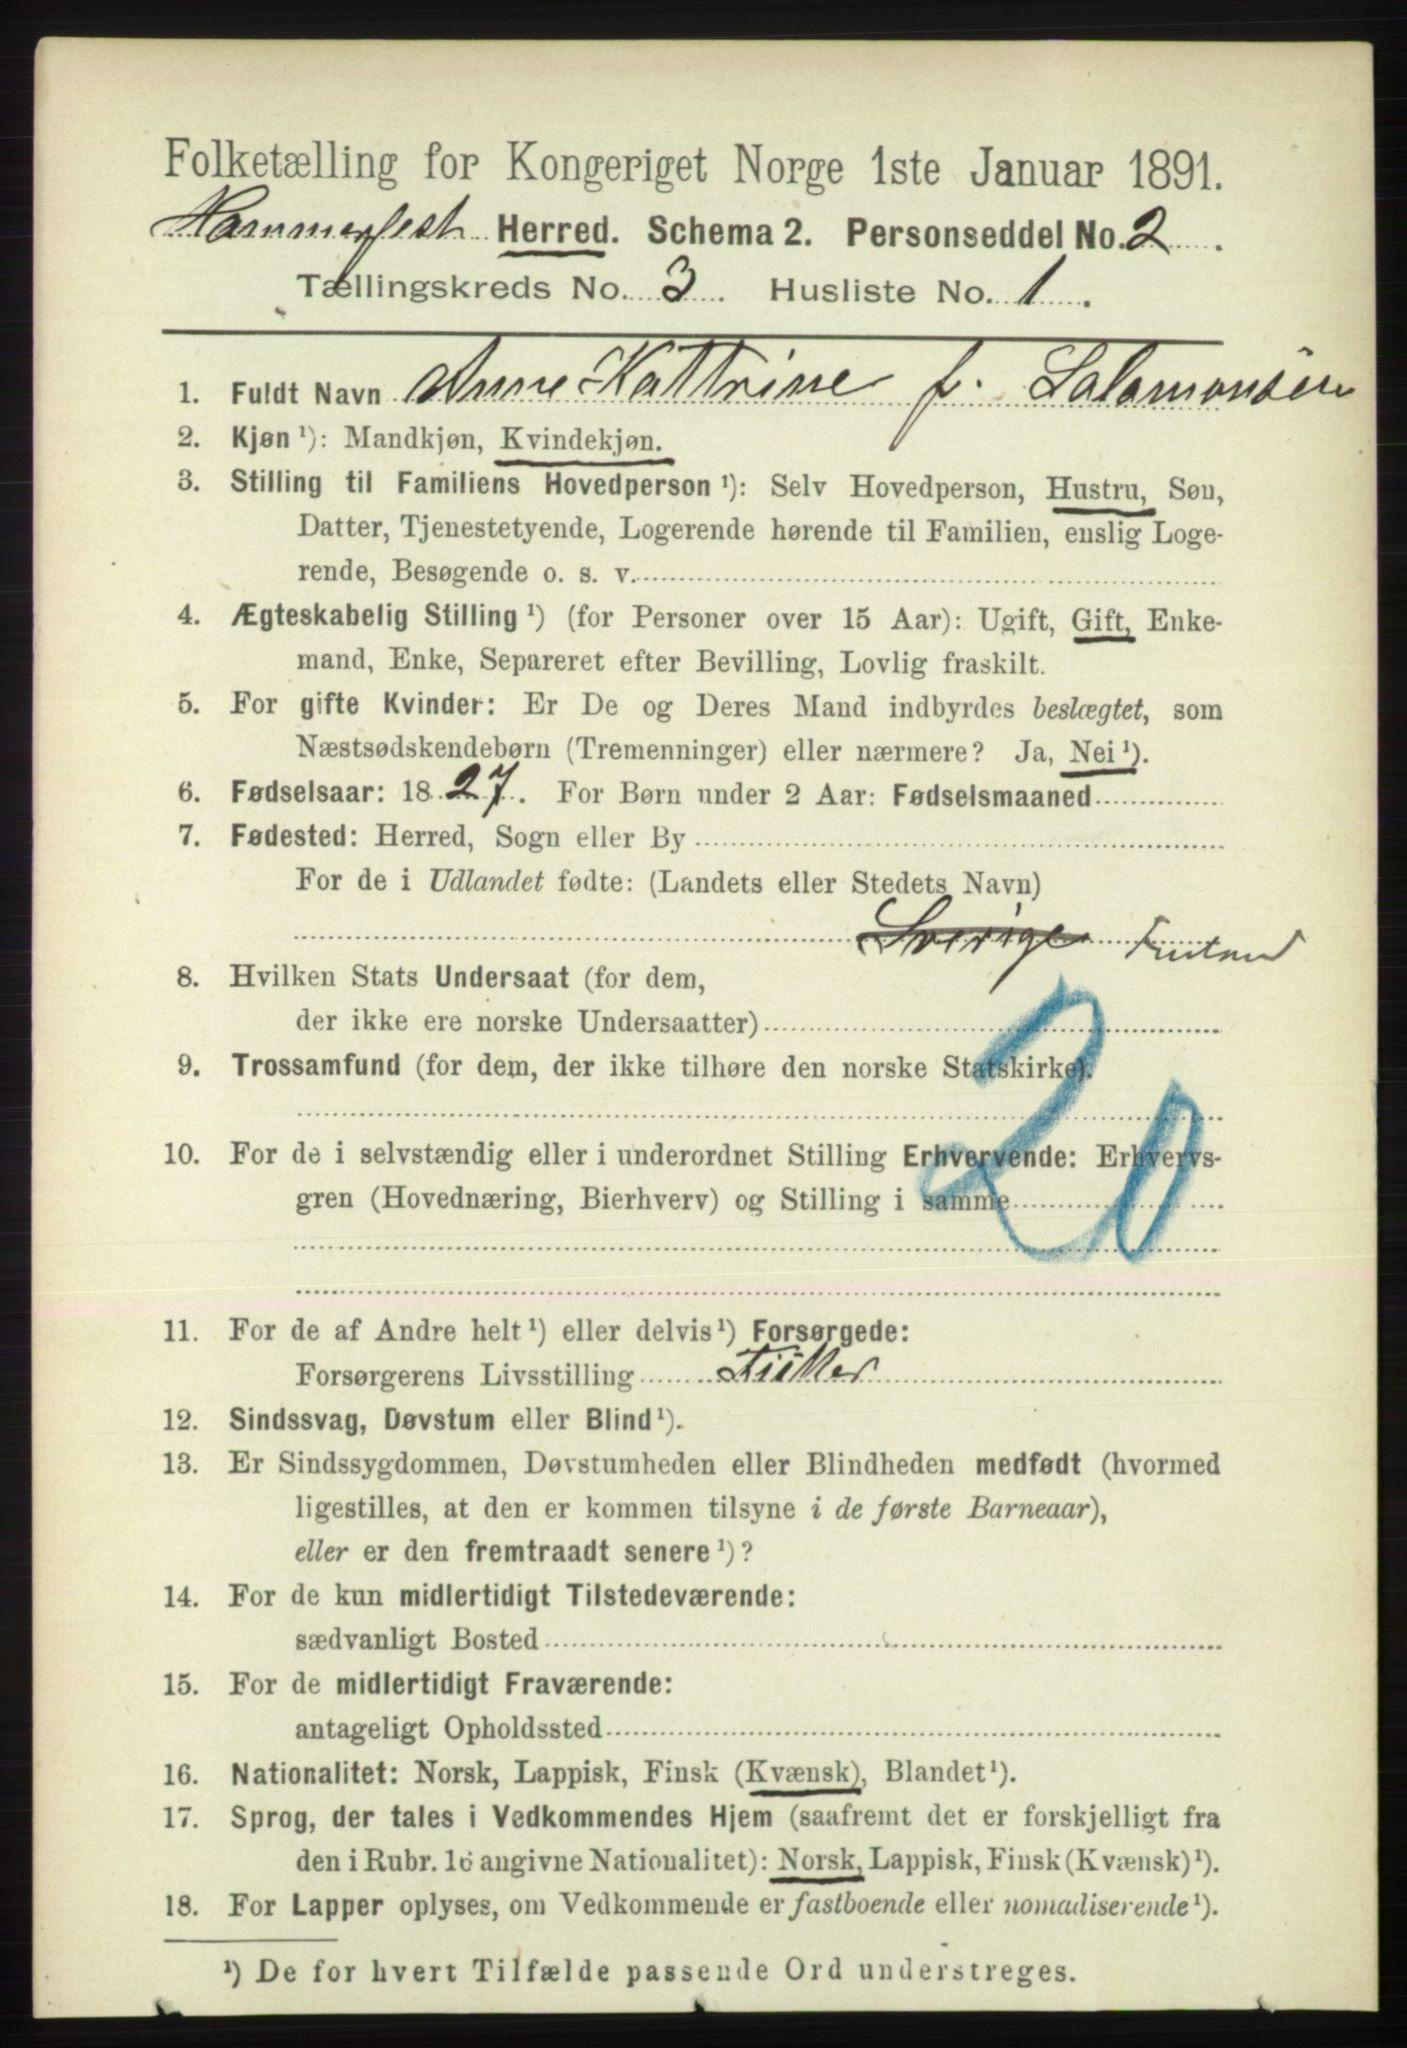 Folketælling for Kongeriget Norge 1ste Januar 1891.
Hammerfest Herred. Schema 2. Personseddel No. 2.
Tællingskreds No. 3. Husliste No. 1.
1. Fuldt Navn Anne Kattrine f. Salamonsen
2. Kjøn ¹): Mandkjøn, Kvindekjøn.
3. Stilling til Familiens Hovedperson ¹): Selv Hovedperson, Hustru, Søn,
Datter, Tjenestetyende, Logerende hørende til Familien, enslig Loge-
rende, Besøgende o. s. v.
4. Ægteskabelig Stilling ¹) (for Personer over 15 Aar): Ugift, Gift, Enke-
mand, Enke, Separeret efter Bevilling, Lovlig fraskilt.
5. For gifte Kvinder: Er De og Deres Mand indbyrdes beslægtet, som
Næstsødskendebørn (Tremenninger) eller nærmere? Ja, Nei ¹).
6. Fødselsaar: 1827. For Børn under 2 Aar: Fødselsmaaned
7. Fødested: Herred, Sogn eller By
For de i Udlandet fødte: (Landets eller Stedets Navn)
Sverige
8. Hvilken Stats Undersaat (for dem,
der ikke ere norske Undersaatter)
9. Trossamfund (for dem, der ikke tilhøre den norske Statskirke).
20
10. For de i selvstændig eller i underordnet Stilling Erhvervende: Erhvervs-
gren (Hovednæring, Bierhverv) og Stilling i samme
11. For de af Andre helt ¹) eller delvis ¹) Forsørgede:
Forsørgerens Livsstilling Fisker
12. Sindssvag, Døvstum eller Blind ¹).
13. Er Sindssygdommen, Døvstumheden eller Blindheden medfødt (hvormed
ligestilles, at den er kommen tilsyne i de første Barneaar),
eller er den fremtraadt senere ¹)?
14. For de kun midlertidigt Tilstedeværende:
sædvanligt Bosted
15. For de midlertidigt Fraværende:
antageligt Opholdssted
16. Nationalitet: Norsk, Lappisk, Finsk (Kvænsk), Blandet ¹).
17. Sprog, der tales i Vedkommendes Hjem (saafremt det er forskjelligt fra
den i Rubr. 16 angivne Nationalitet): Norsk, Lappisk, Finsk (Kvænsk) ¹).
18. For Lapper oplyses, om Vedkommende er fastboende eller nomadiserende ¹).
¹) De for hvert Tilfælde passende Ord understreges.